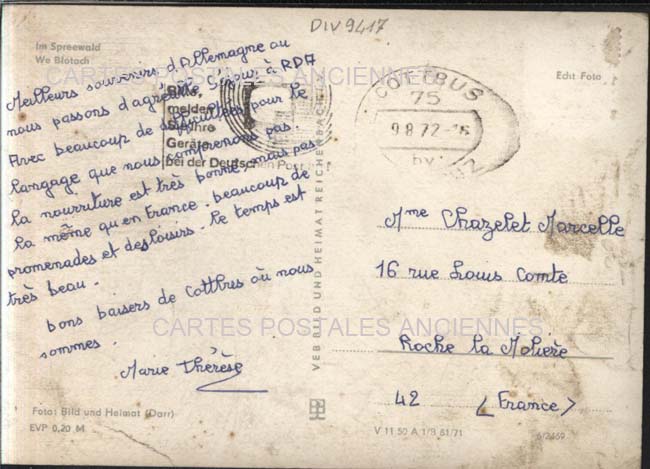 DIV9417
Im Spreewald
We Blotach
Meilleurs souvenirs d'Allemagne ou
nous passons d'agréable séjour à RDA
Avec beaucoup de difficultées pour le
langage que nous comprenons pas.
la nourriture est très bonne, mais pas
la même qu'en France. beaucoup de
promenades et des loisirs. le temps est
très beau.
bons baisers de Cottbres où nous
sommes.
Marie Thérèse
Foto: Bild und Heimat (Darr)
EVP 0,20 M
CARTES POSTALES ANCIENNES
CARTES POSTALES ANCIENNES
Bitte,
melden
Sie Ihre
Geräte
bei der Deutschen Post
COTTBUS
75
9.8.72
by
VEB BILD UND HEIMAT REICHENBACH
Echt Foto
Mme Chazelet Marcelle
16 rue Louis Comte
Roche la Molière
42 (France)
V 11 50 A 1/B 61/71
6/2469